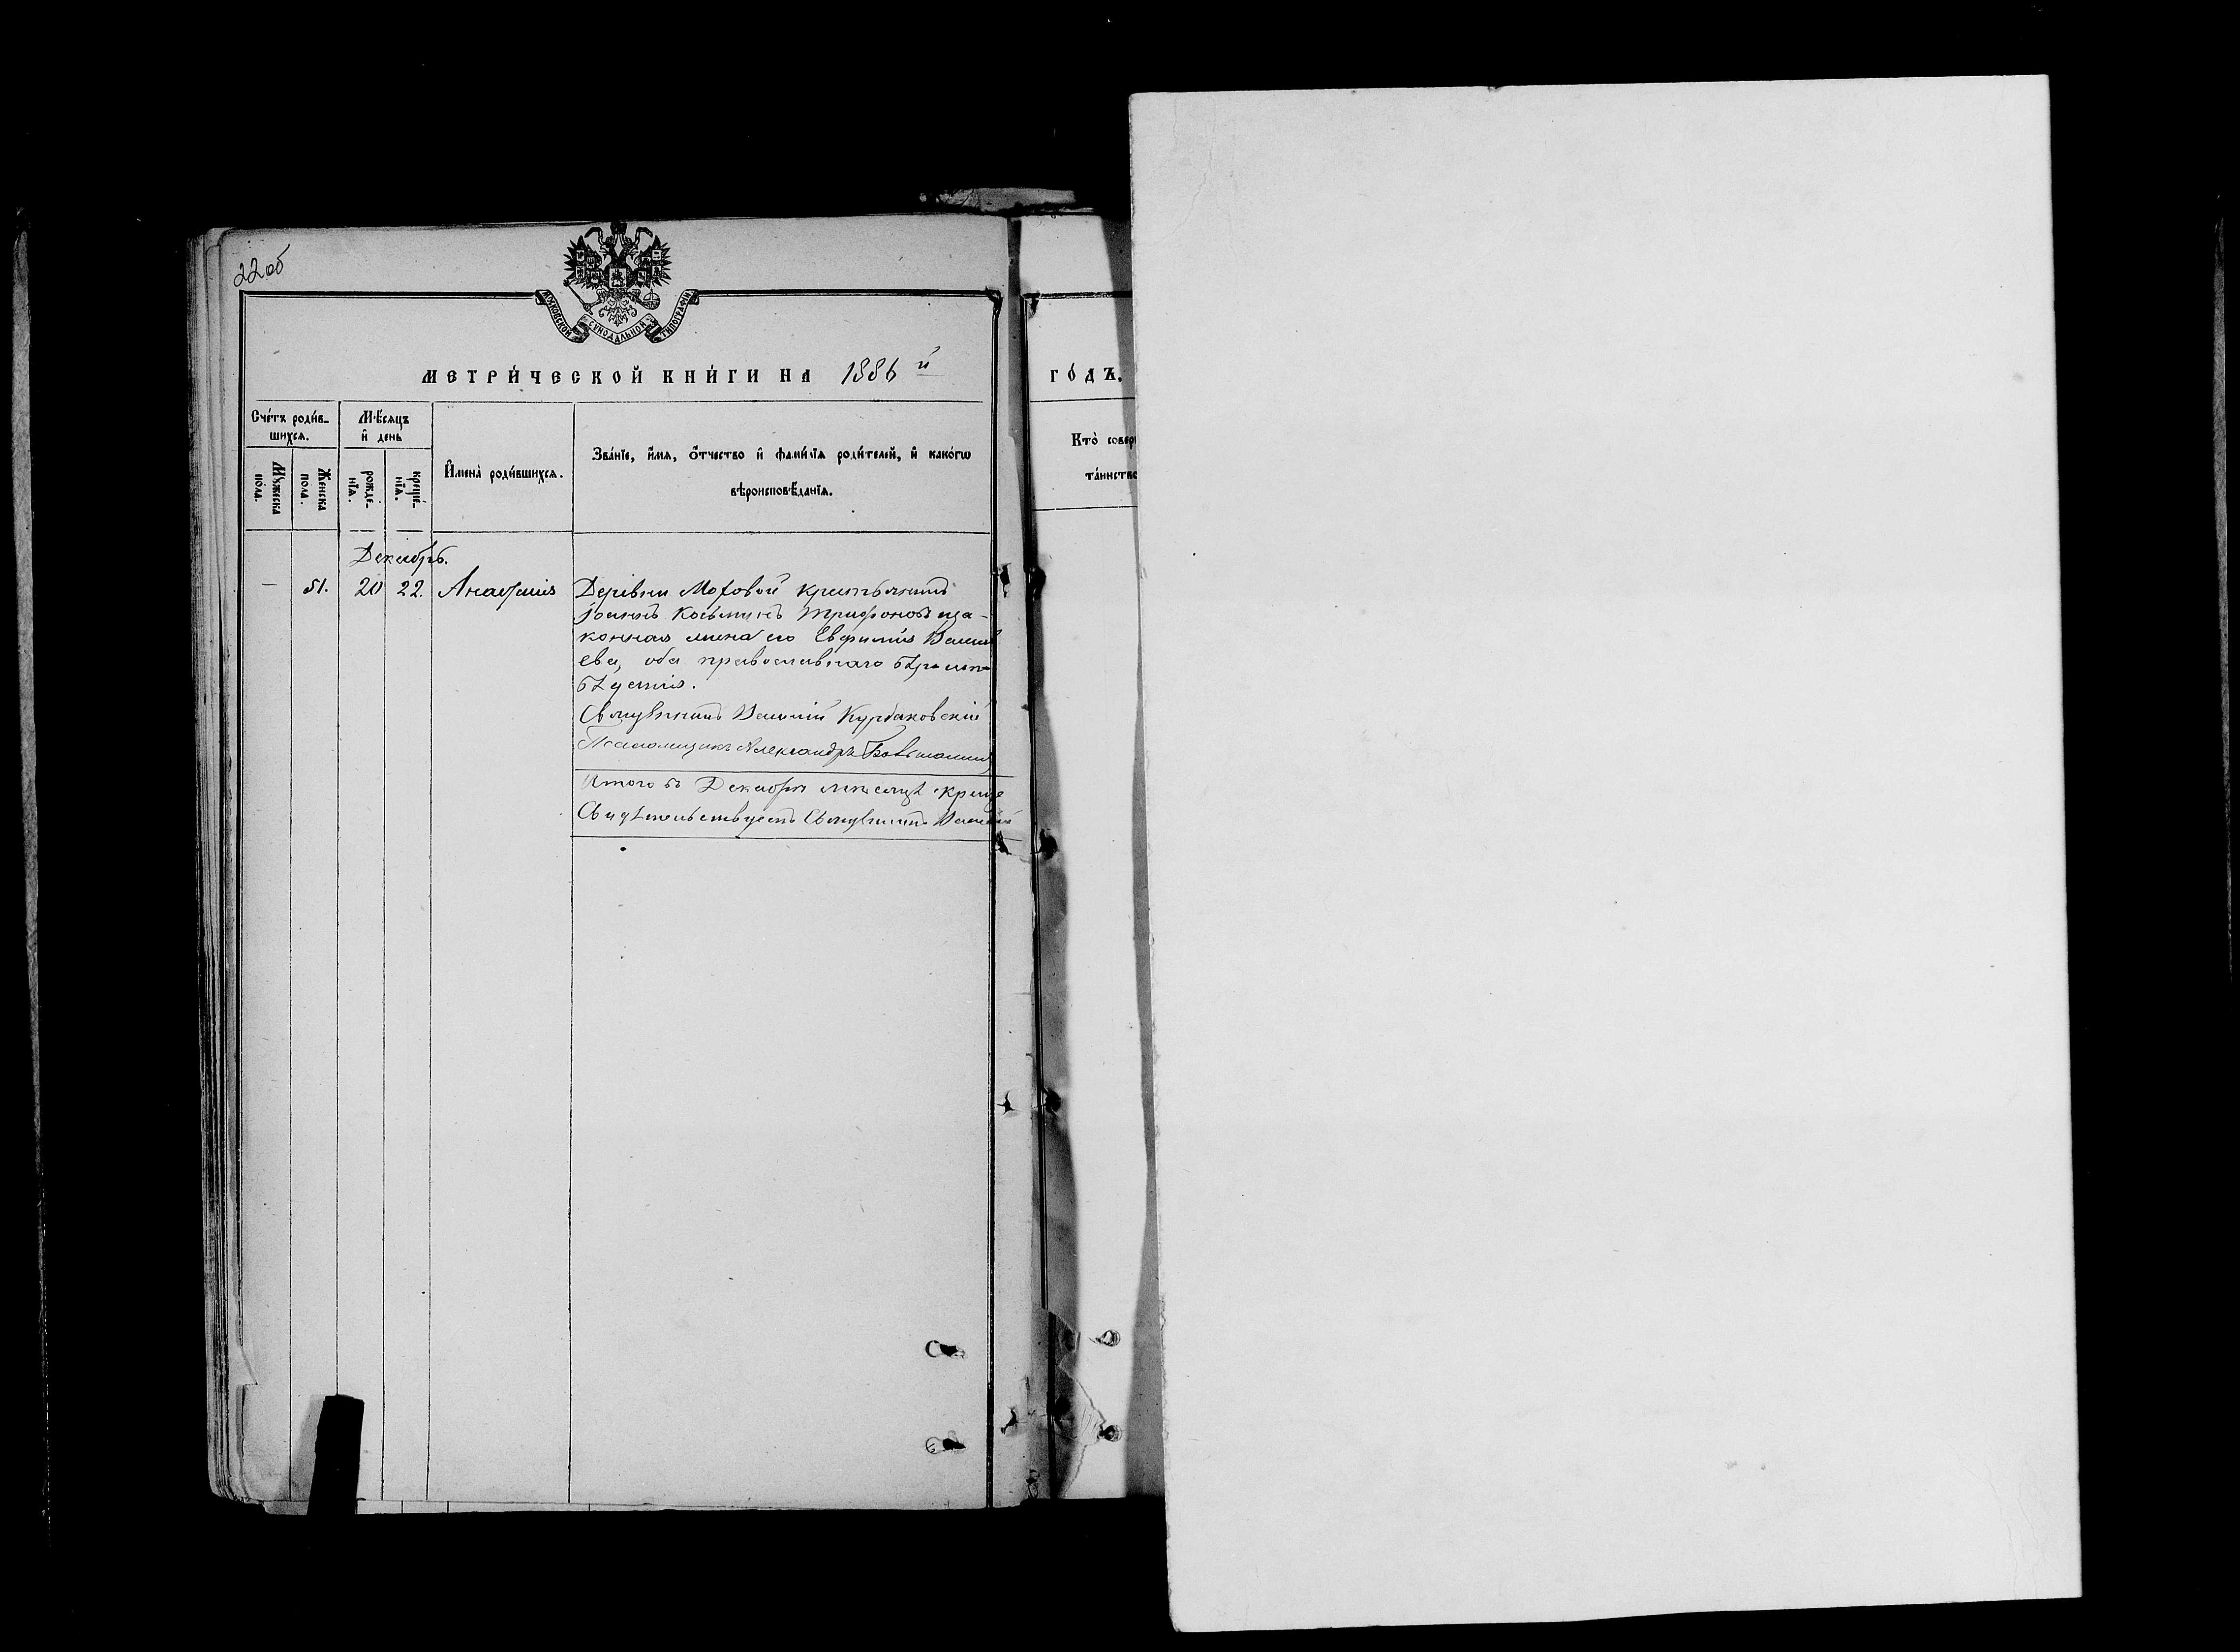 22 об
МОСКОВСКОЙ СУНОДАЛЬНОЙ ТИПОГРАФІИ
МЕТРИ́ЧЕСКОЙ КНИ́ГИ НА 1886 й
ГО́ДЪ.
Сче́тъ роди́в-
шихся.
Мѣ́сяцъ
и҆ день
Мꙋжеска
пола.
Женска
пола.
рожде-
нїѧ.
креще́-
нїѧ.
И҆мена̀ роди́вшихся.
Зва́нїе, и҆́мя, ѻ҆́тчество и҆ фами́лїя роди́телей, и҆ како́гѡ
вѣроисповѣ́данїѧ.
Кто̀ сове
та́инство
Декабрь.
— 51. 20 22. Анастасія
Деревни Моховой крестьянинъ
Іоаннъ Косьминъ Трифоновъ и за-
конная жена его Евфимія Васильева
ева, оба православнаго вѣроиспо-
вѣданія.
Священникъ Василій Курбановскій
Псаломщикъ Александръ
Итого въ Декабрѣ мѣсяцѣ креще
Свидѣтельствуетъ Священникъ Василій